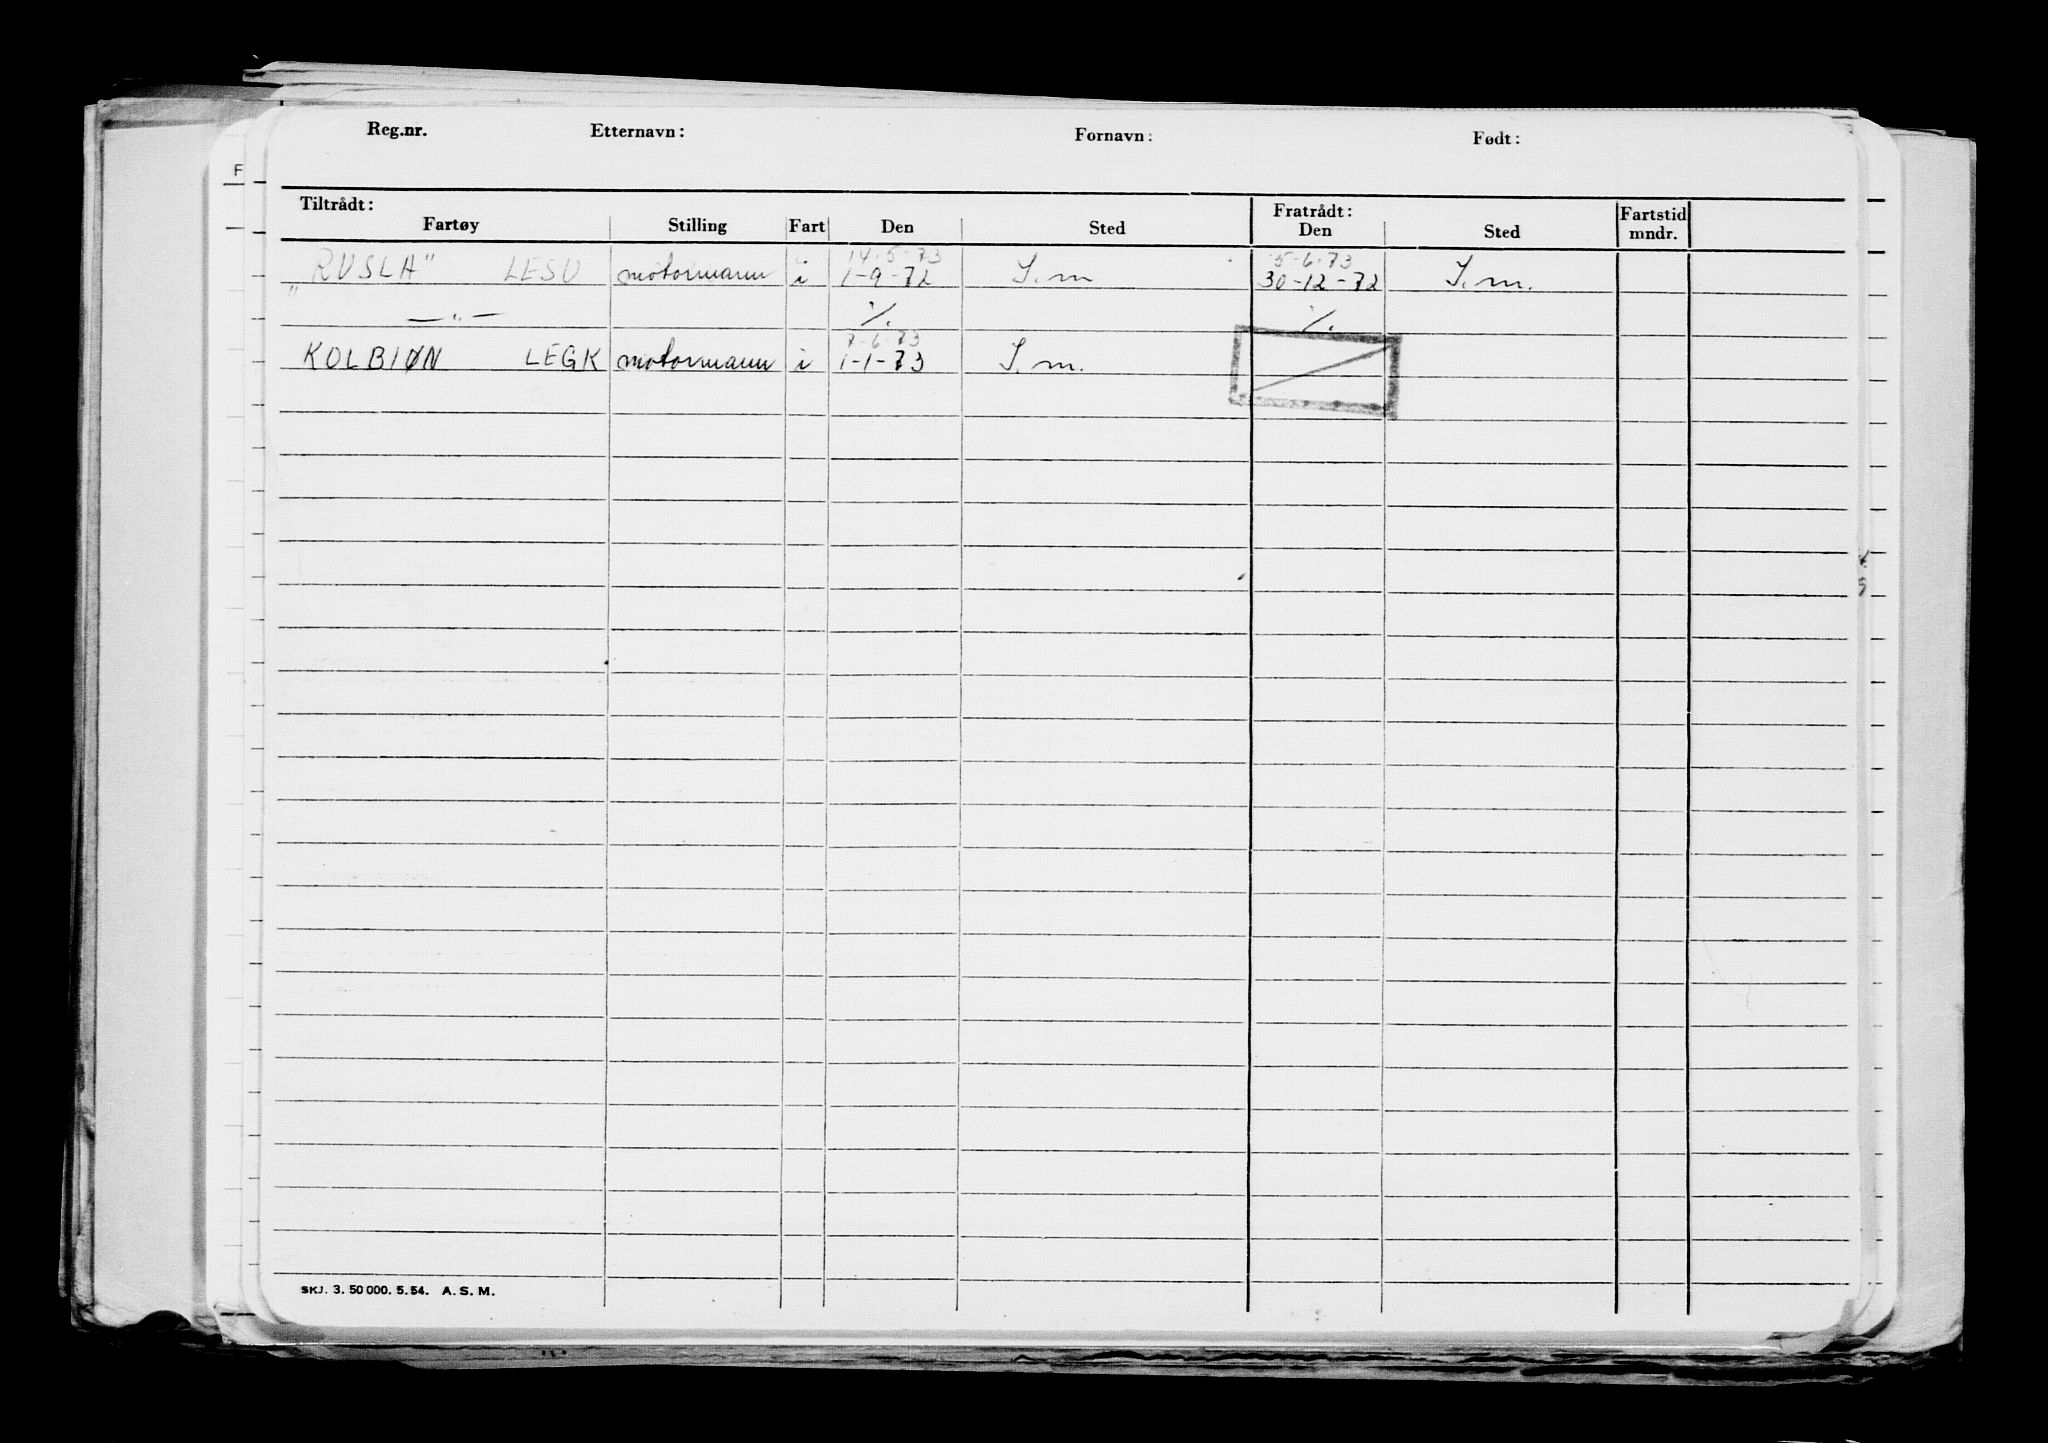 Reg.nr. Etternavn: Fornavn: Født:
Tiltrådt: Fratrådt: Fartstid
Fartøy Stilling Fart Den Sted Den Sted mndr.
14-5-73 5-6-73
"RUSLA" LESU motormann i 1-9-72 S.m 30-12-72 S.m.
—"— ·/. ·/.
7-6-73
KOLBIØN LEGK motormann i 1-1-73 S.m.
SKJ. 3. 50 000. 5. 54. A. S. M.
F